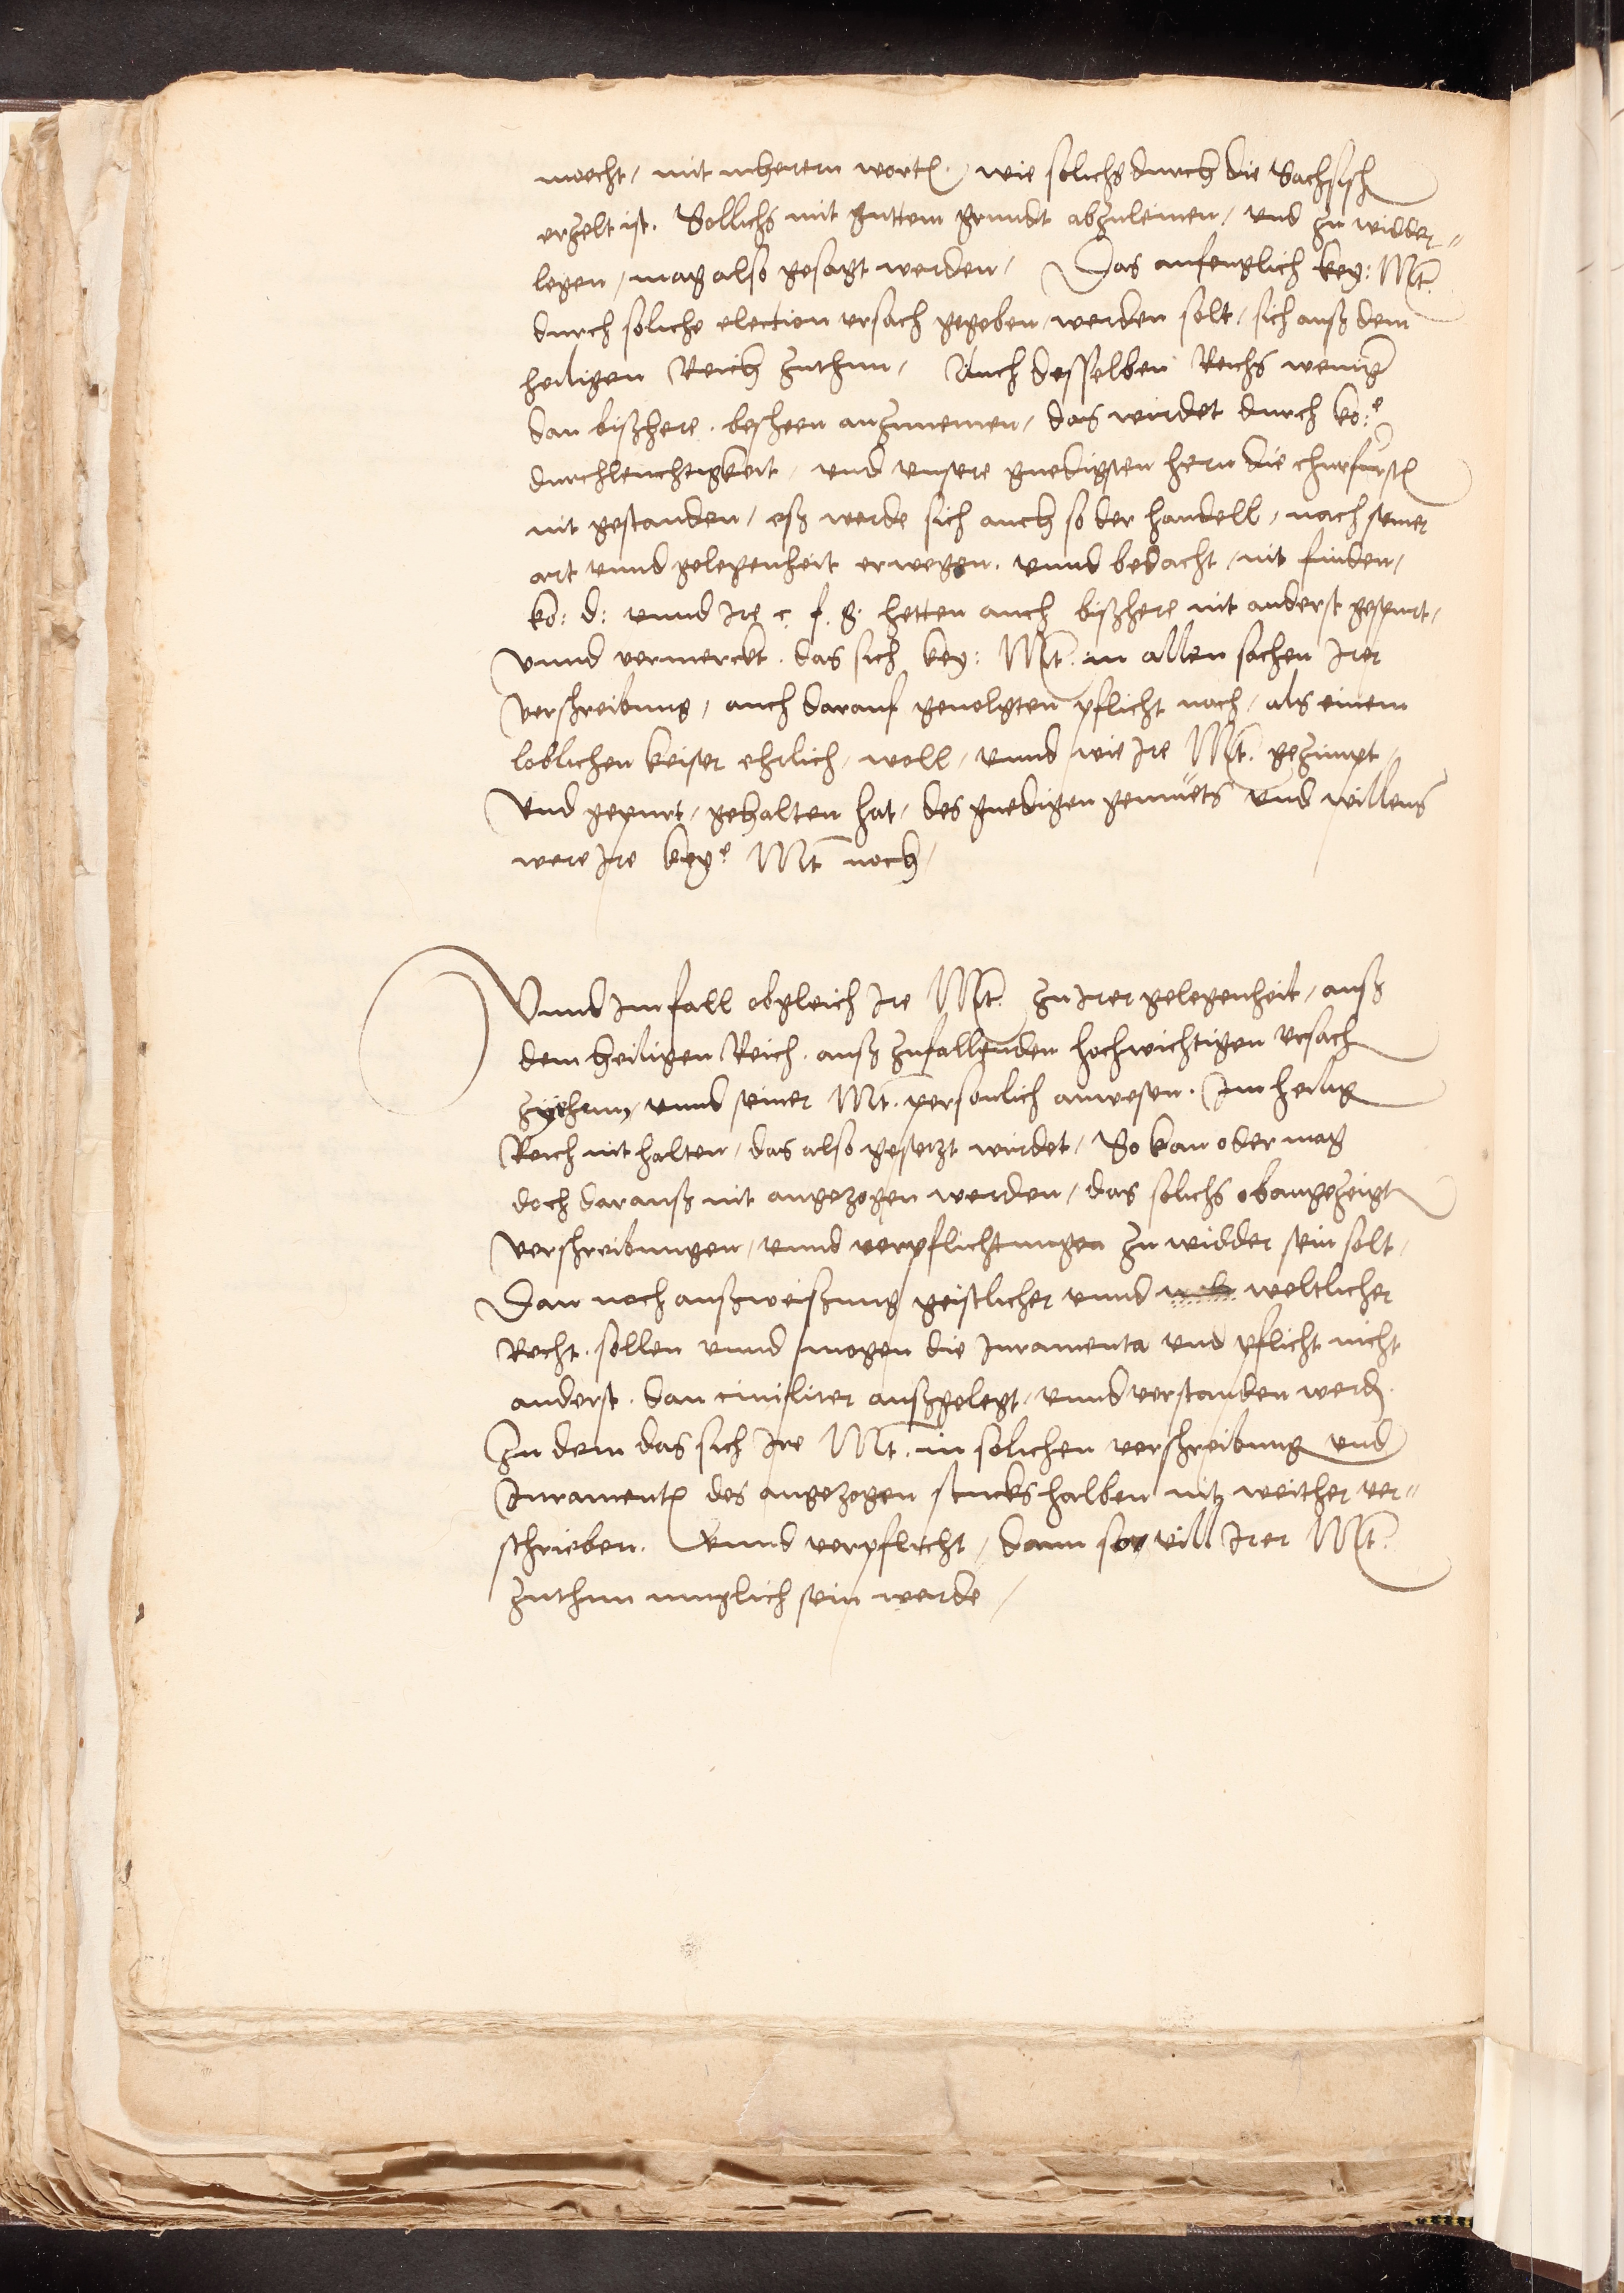 moecht, mit mherern worten, wie solichs durch die Sachsisch
erzelt ist. Sollichs mit guttem grundt abzuleinen, und zu widder-
legen, mag also gesagt werden, Das anfenglich key: Mt.
durch soliche election ursach gegeben werden solt, sich auß dem
heiligen Reich zuthun, Auch desselben Reichs weniger
dan bißhere, beschen anzunemen, das wirdet durch ko:e
durchleuchtigkeit, und unsere gnedigsten hern die churfursten
nit gestanden, eß werde sich auch so der handell, nach seiner
art unnd gelegenheit erwegen, unnd bedacht, nit finden,
ko: d: unnd Ire c. f. g. hetten auch bißhere nit anderst gespurt,
Unnd vermerckt, das sich key: Mt. in allen sachen Irer
verschreibung, auch darauf gevolgten pflicht nach, als einem
loblichen keiser ehrlich, woll, unnd wie Ire Mt. gezimpt,
Und gepurt, gehalten hat, des gnedigen gemuets und willens
were Ire keye Mt noch,
Unnd Im fall obgleich Ire Mt. zu Irer gelegenheit, auß
dem heiligen Reich, auß zufallenden hochwichtigen ursach
ziehenn, unnd seiner Mt. personlich anwesen, Im heilig
Reich nit halten, das also gesetzt wirdet, So kan oder mag
doch darauß nit angezogen werden, das solichs obangezeigt
verschreibungen, unnd verpflichtungen zu widder sein solt,
Dan nach außweißung geistlicher unnd weltlicher
Recht, sollen unnd mogen die Juramenta und pflicht nicht
anderst, dan civiliter außgelegt, unnd verstanden werden.
Zu dem das sich Ire Mt. in solichen verschreibung und
Juramenten des angezogen stucks halben nit weither ver-
schrieben, unnd verpflicht, dann so vill Irer Mt.
zuthun muglich sein werde,